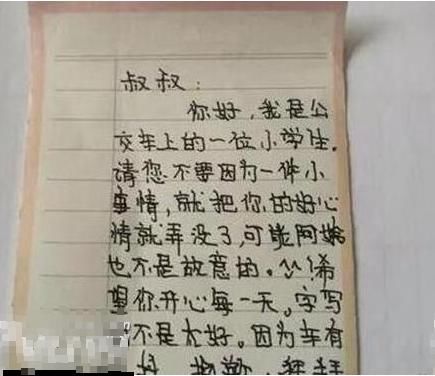 叔叔：
你好，我是公
交车上的一位小学生.
请您不要因为一件小
事情，就把你的好心
情就弄没了，可能阿姨
也不是故意的。希
望你开心每一天。字写
不是太好。因为车有